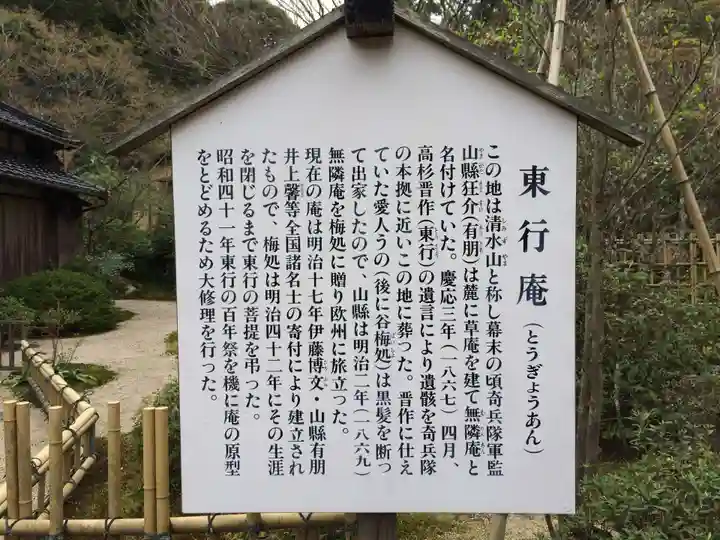 東行庵（とうぎょうあん）
この地は清水山と称し幕末の頃奇兵隊軍監
山縣狂介（有朋）は麓に草庵を建て無隣庵と
名付けていた。慶応三年（一八六七）四月、
高杉晋作（東行）の遺言により遺骸を奇兵隊
の本拠に近いこの地に葬った。晋作に仕え
ていた愛人うの（後に谷梅処）は黒髪を断っ
て出家したので、山縣は明治二年（一八六九）
無隣庵を梅処に贈り欧州に旅立った。
現在の庵は明治十七年伊藤博文・山縣有朋
井上馨等全国諸名士の寄付により建立され
たもので、梅処は明治四十二年にその生涯
を閉じるまで東行の菩提を弔った。
昭和四十一年東行の百年祭を機に庵の原型
をとどめるため大修理を行った。